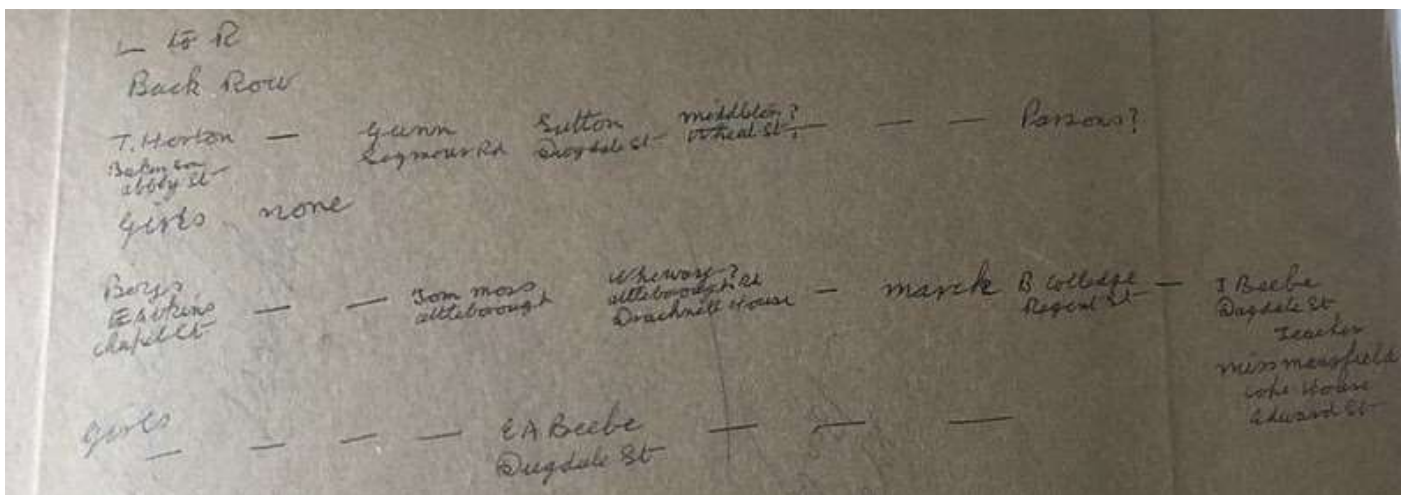 L to R
Back Row
T. Horton — Gunn Sutton Middleton? — — — Parsons?
Seymour Rd Dugdale St Wheat St?
Abbey St
Girls none
Boys
E Atkins — — Tom Moss Wheway? — Marck B Colledge — J Beebe
Chapel St Attleborough Attleborough Rd Regent St Dugdale St
House
Teacher
Miss Mansfield
House
Edward St
Girls
— — — — E A Beebe — — —
Dugdale St